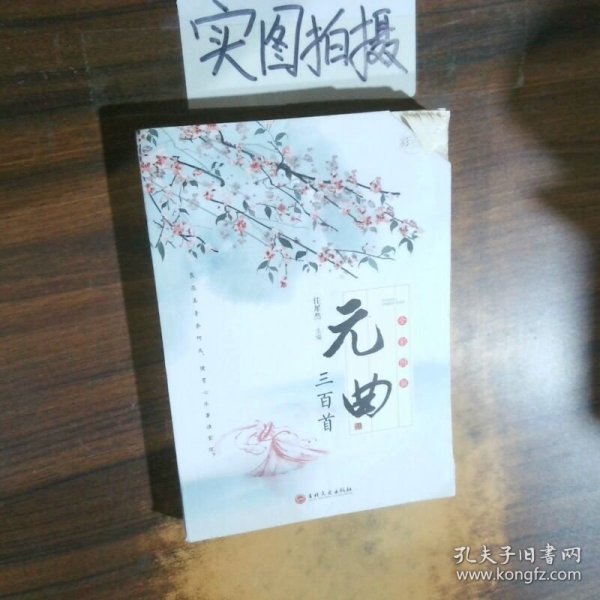 实图拍摄
元曲
三百首
任犀然 主编
全彩图解
吉林文史出版社
孔夫子旧书网
www.kongfz.com